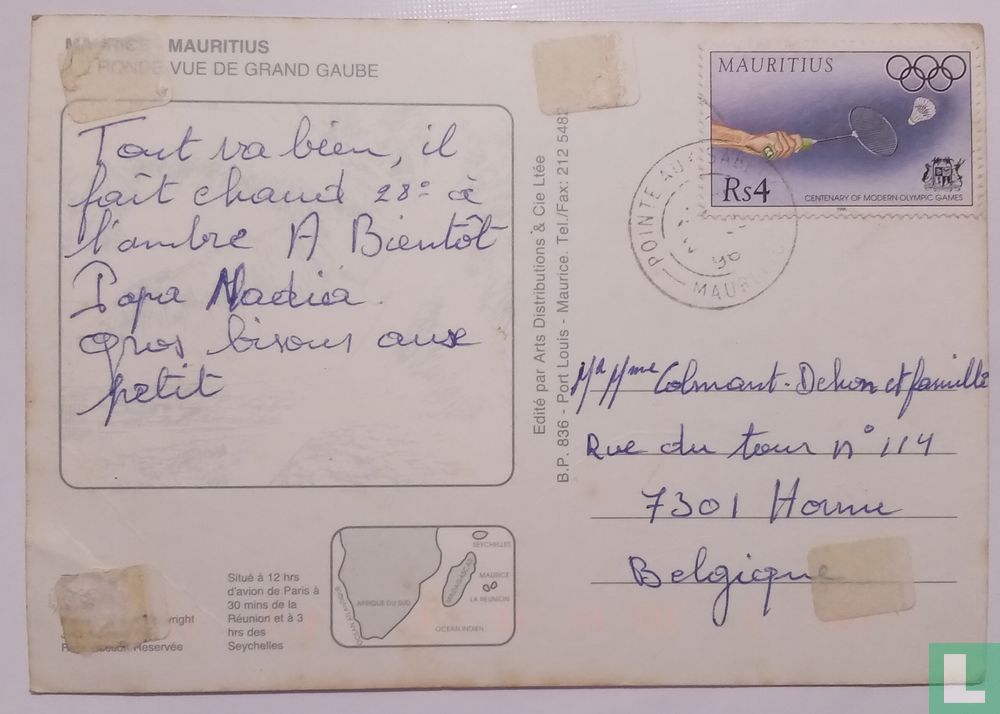 MAURICE - MAURITIUS
RONDE VUE DE GRAND GAUBE
Tout va bien, il
fait chaud 28° à
l'ombre A Bientôt
Papa Nadia
gros bisous aux
petit
Edité par Arts Distributions & Cie Ltée
B.P. 836 - Port Louis - Maurice. Tel./Fax: 212 5482
MAURITIUS
Rs4
CENTENARY OF MODERN OLYMPIC GAMES
POINTE AUX
96
MAURITIUS
Mr Mme Colmant-Dehon et famille
Rue du tour n° 114
7301 Hornu
Belgique
Situé à 12 hrs
d'avion de Paris à
30 mins de la
Réunion et à 3
hrs des
Seychelles
Reservée
SEYCHELLES
MADAGASCAR
MAURICE
LA REUNION
AFRIQUE DU SUD
OCEAN ATLANTIQUE
OCEAN INDIEN
L